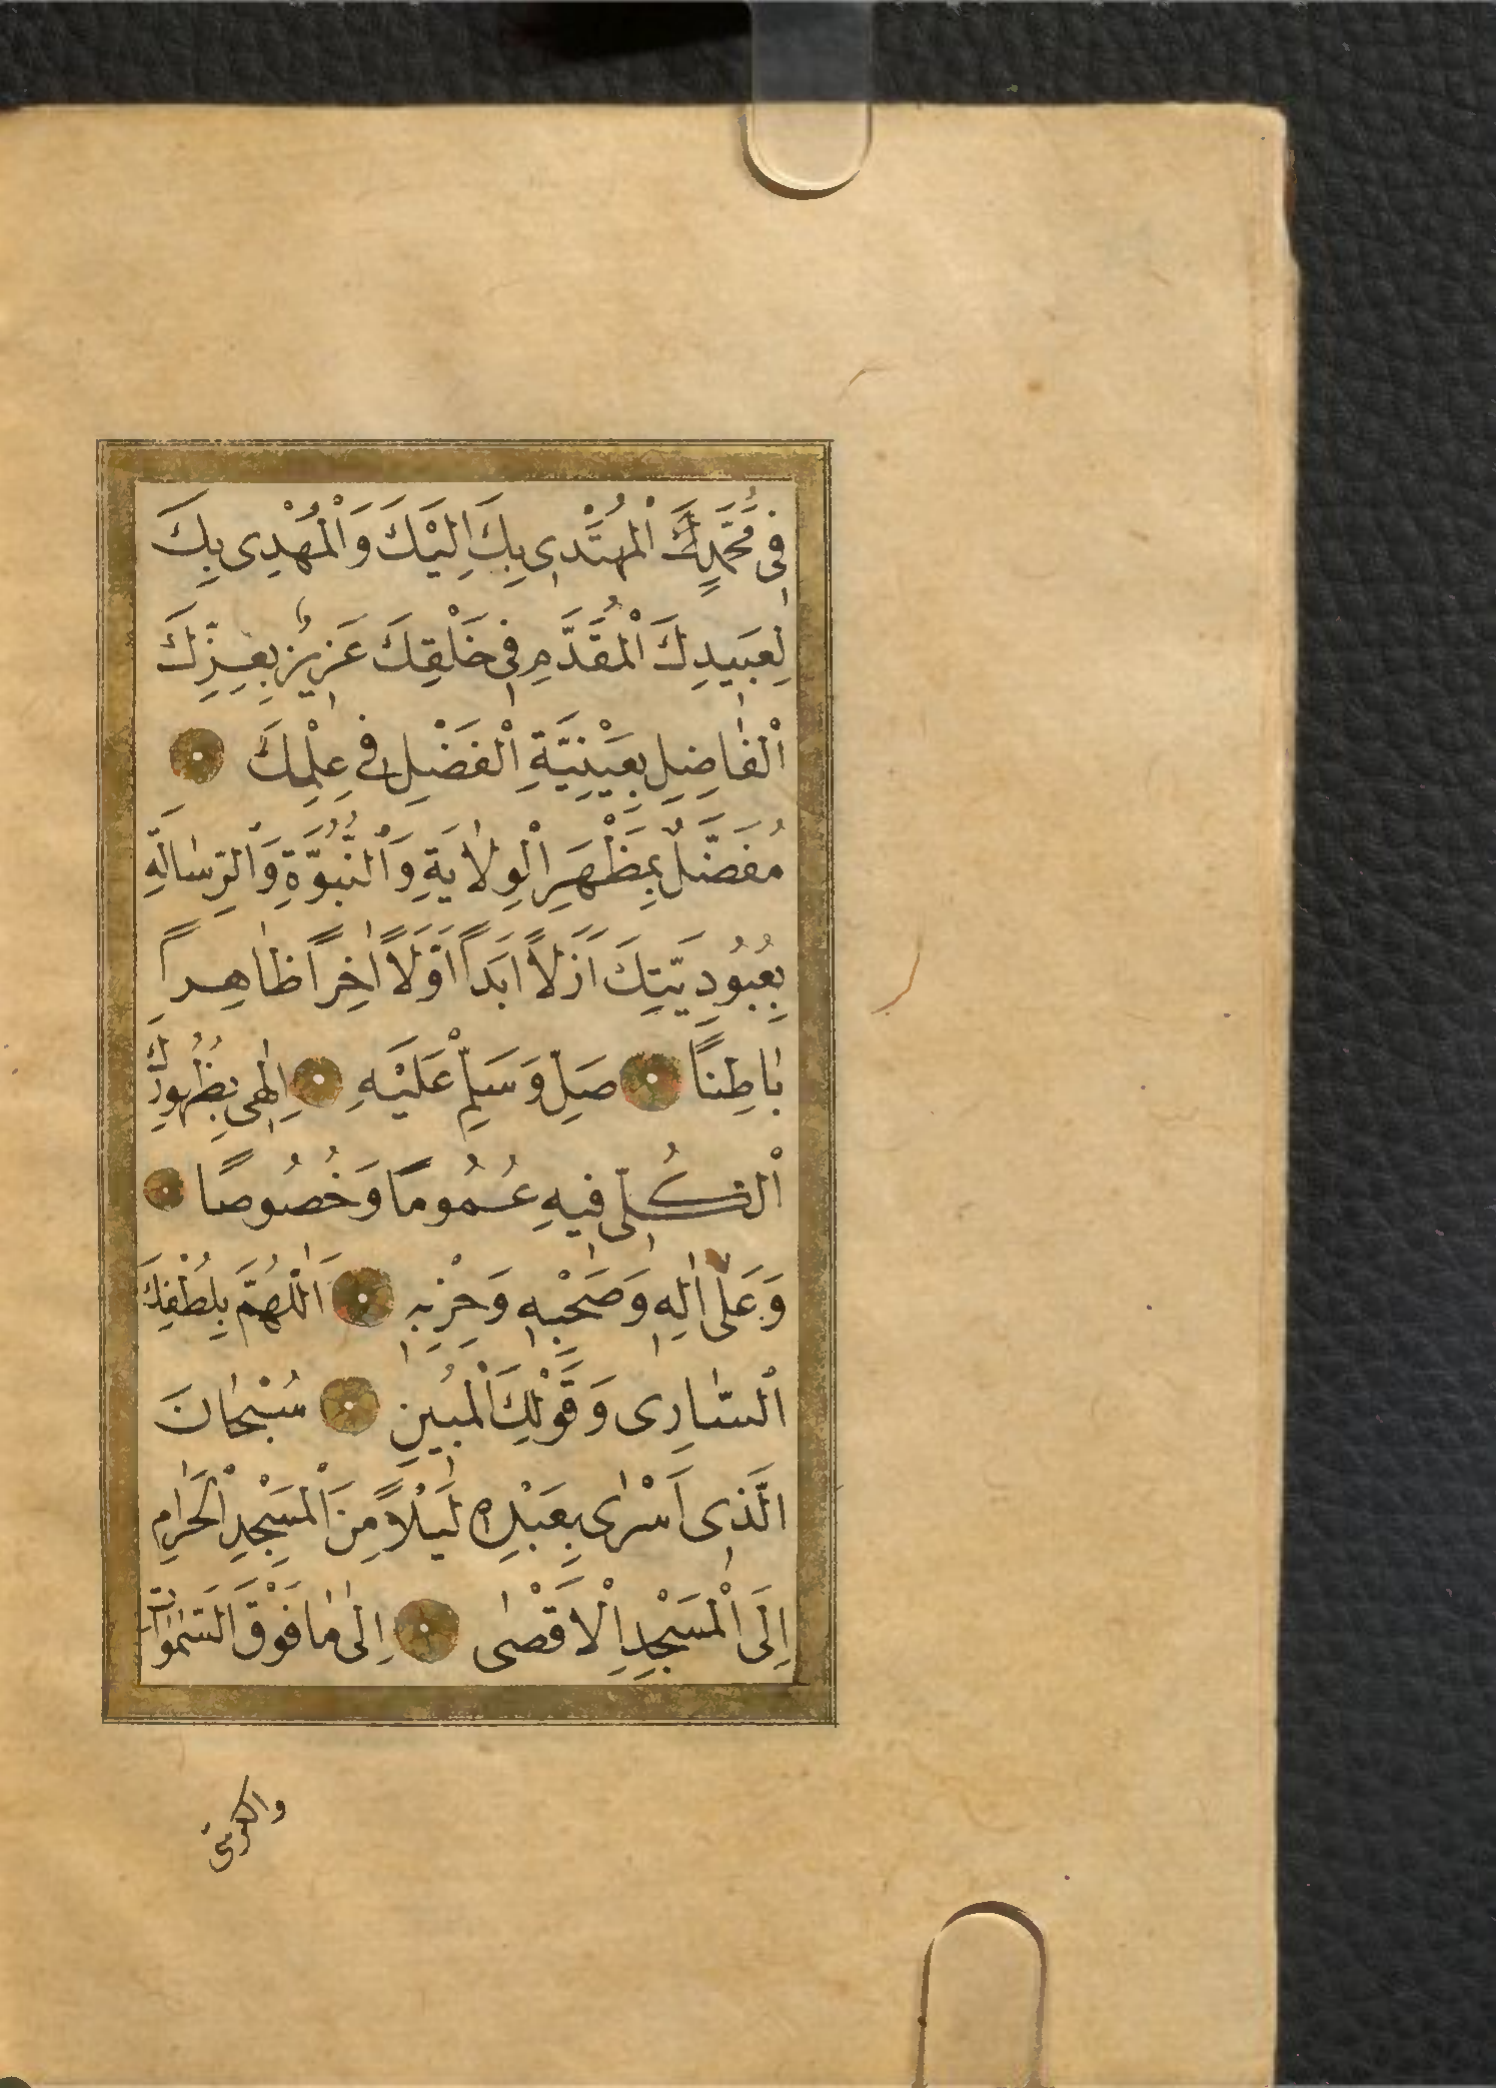 فِى مُحَمَّدِكَ الْمُهْتَدِى بِكَ اِلَيْكَ وَالْمُهْدِى بِكَ
لِعَبِيدِكَ الْمُقَدَّمِ فِى خَلْقِكَ عَزِيزٌ بِعِزِّكَ
الْفَاضِلِ بِعَيْنِيَّةِ الْفَضْلِ فِى عِلْمِكَ
مُفَضَّلٌ بِمَظْهَرِ الْوِلَايَةِ وَالنُّبُوَّةِ وَالرِّسَالَةِ
بِعُبُودِيَّتِكَ اَزَلًا اَبَدًا اَوَّلًا اٰخِرًا ظَاهِرًا
بَاطِنًا صَلِّ وَسَلِّمْ عَلَيْهِ اِلٰهِى بِظُهُورِكَ
الْكُلِّى فِيهِ عُمُومًا وَخُصُوصًا
وَعَلٰى اٰلِهِ وَصَحْبِهِ وَحِزْبِهِ اَللّٰهُمَّ بِلُطْفِكَ
السَّارِى وَقَوْلِكَ الْمُبِينِ سُبْحَانَ
الَّذِى اَسْرٰى بِعَبْدِهِ لَيْلًا مِنَ الْمَسْجِدِ الْحَرَامِ
اِلَى الْمَسْجِدِ الْاَقْصٰى اِلٰى مَا فَوْقَ السَّمٰوَاتِ
والكرسى